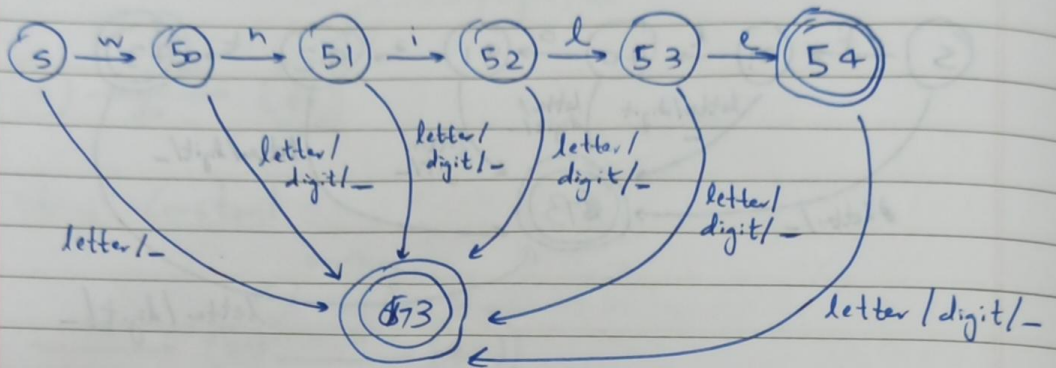 S w 50 h 51 i 52 l 53 e 54
letter/ digit/_
letter/ digit/_
letter/ digit/_
letter/ digit/_
letter/_
letter/digit/_
73